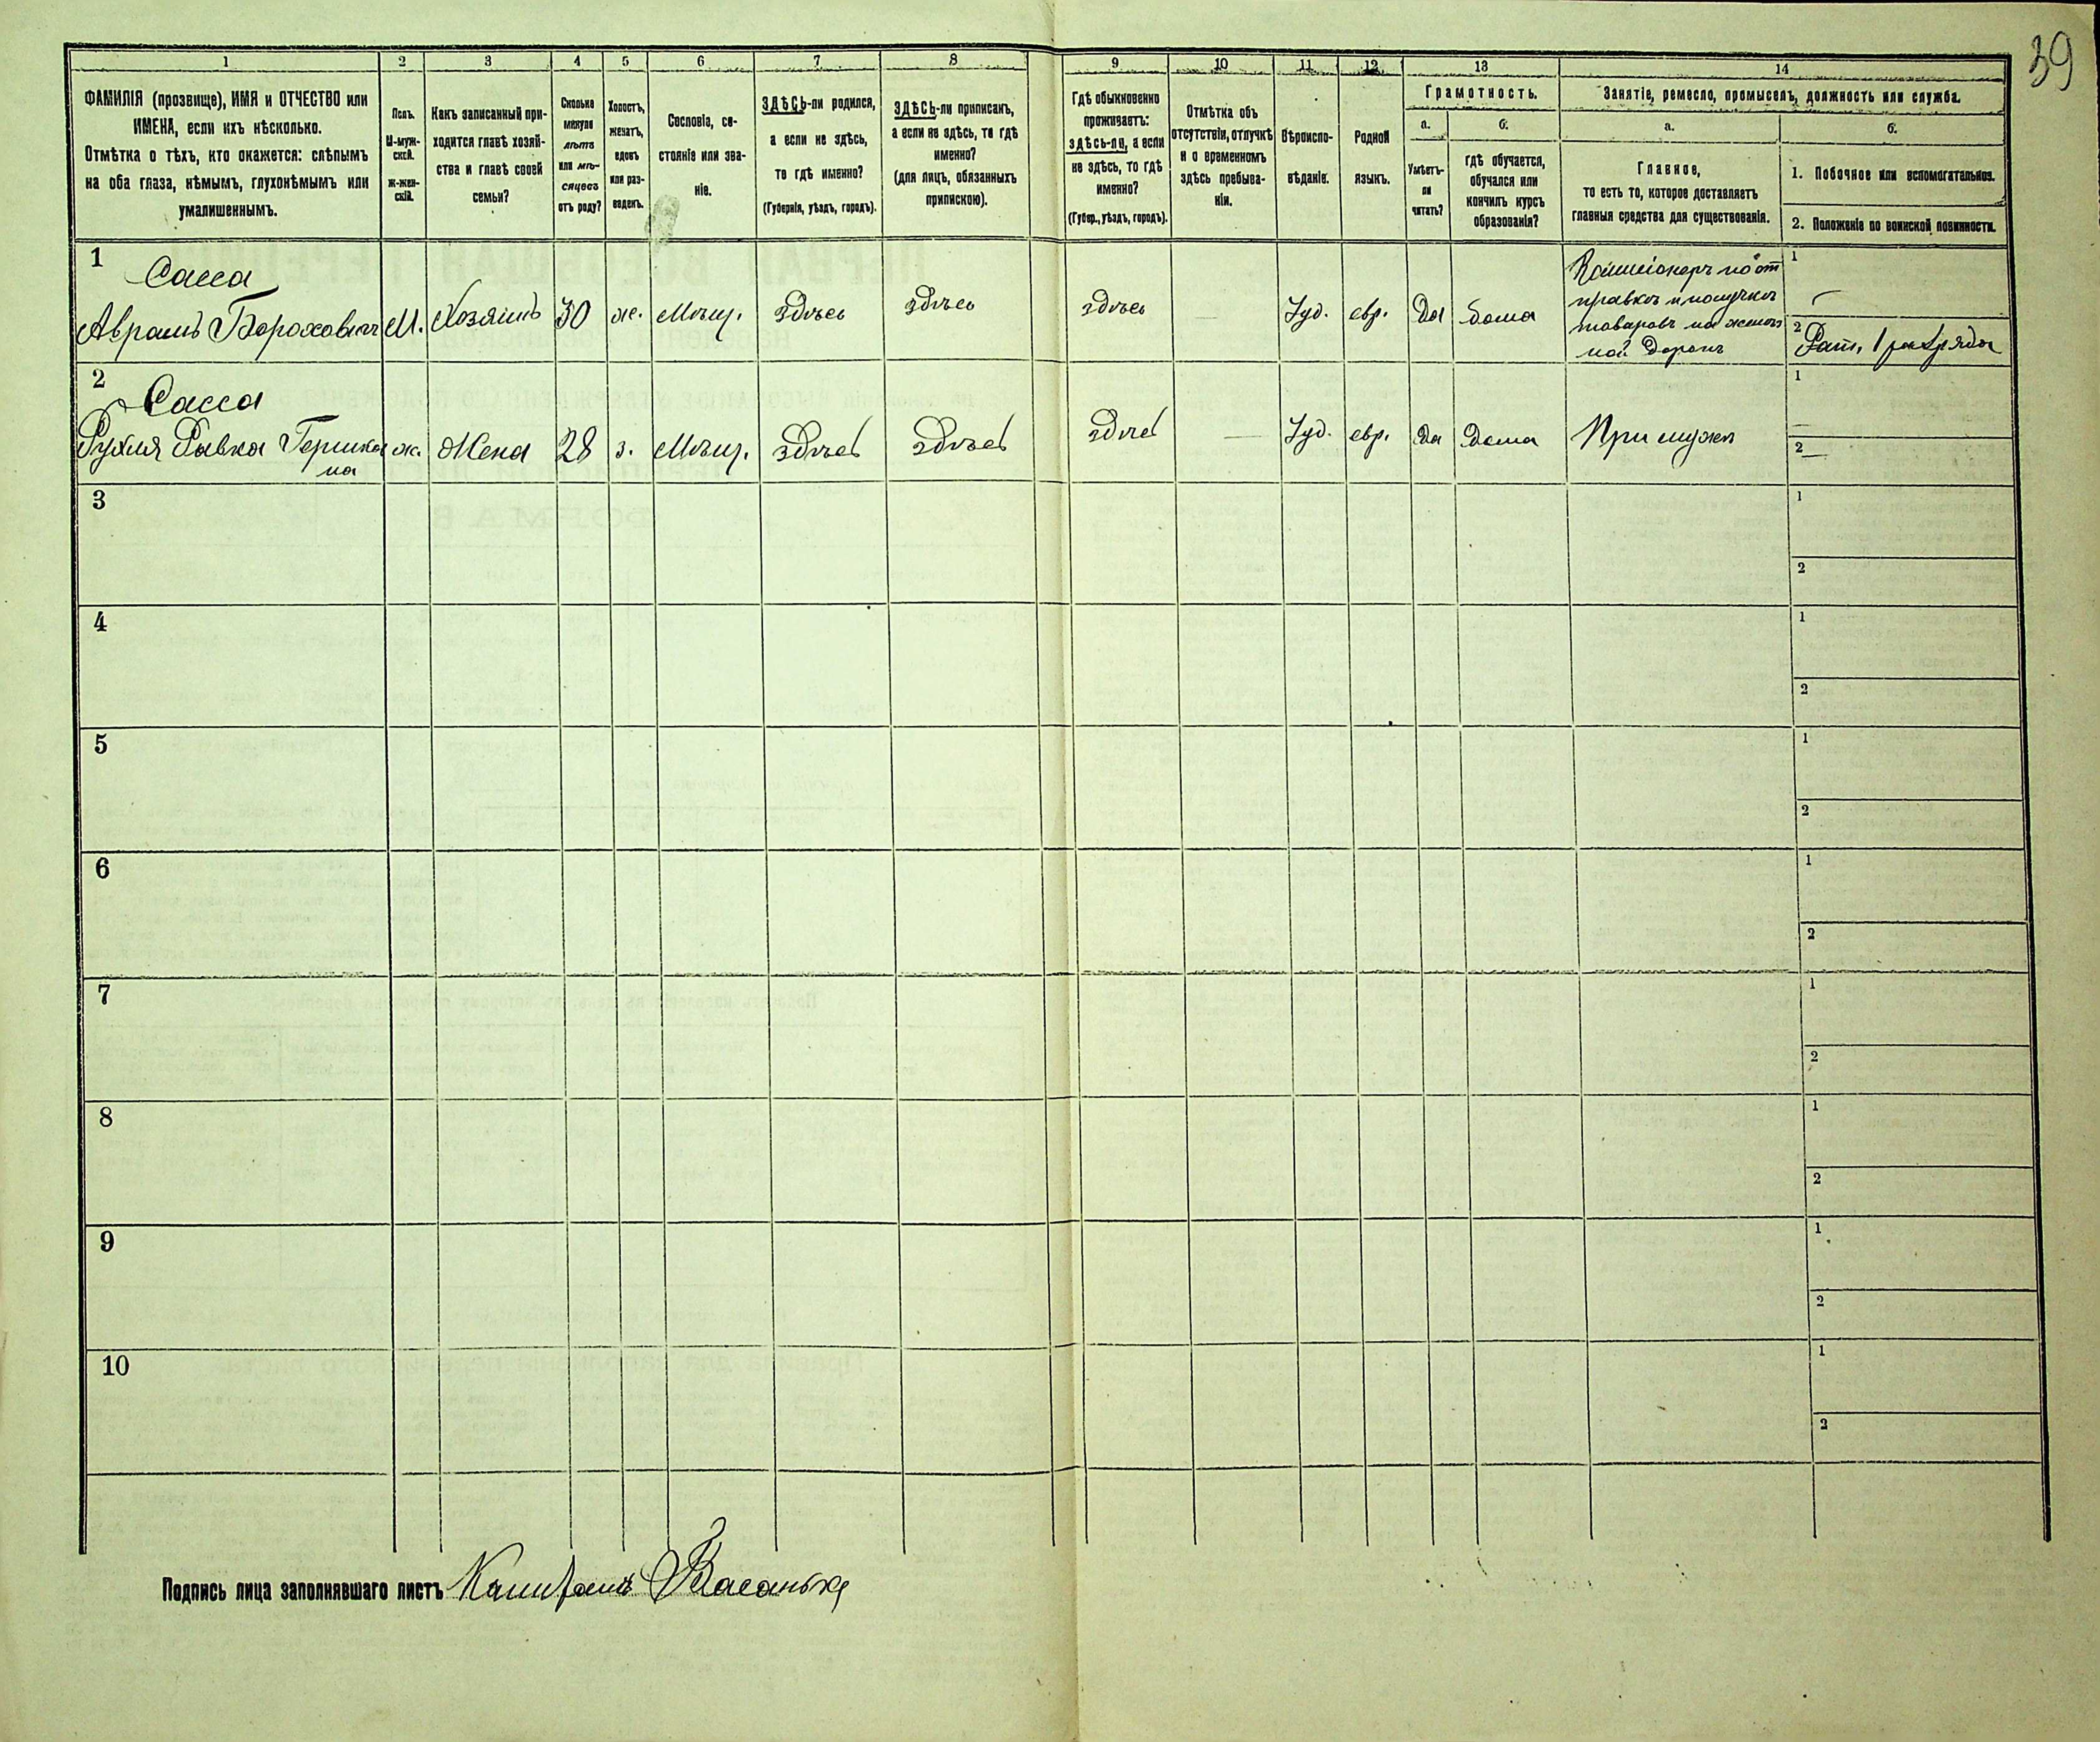 39
1 2 3 4 5 6 7 8 9 10 11 12 13 14
ФАМИЛІЯ (прозвище), ИМЯ и ОТЧЕСТВО или
ИМЕНА, если ихъ нѣсколько.
Отмѣтка о тѣхъ, кто окажется: слѣпымъ
на оба глаза, нѣмымъ, глухонѣмымъ или
умалишеннымъ.
Полъ.
М-муж-
ской.
Ж-жен-
скій.
Какъ записанный при-
ходится главѣ хозяй-
ства и главѣ своей
семьи?
Сколько
минуло
лѣтъ
или мѣ-
сяцевъ
отъ роду?
Холостъ,
женатъ,
вдовъ
или раз-
веденъ.
Сословіе, со-
стояніе или зва-
ніе.
ЗДѢСЬ-ли родился,
а если не здѣсь,
то гдѣ именно?
(Губернія, уѣздъ, городъ).
ЗДѢСЬ-ли приписанъ,
а если не здѣсь, то гдѣ
именно?
(для лицъ, обязанныхъ
припискою).
Гдѣ обыкновенно
проживаетъ:
здѣсь-ли, а если
не здѣсь, то гдѣ
именно?
(Губер., уѣздъ, городъ).
Отмѣтка объ
отсутствіи, отлучкѣ
и о временномъ
здѣсь пребыва-
ніи.
Вѣроиспо-
вѣданіе.
Родной
языкъ.
Грамотность.
а.
Умѣетъ-
ли
читать?
б.
гдѣ обучается,
обучался или
кончилъ курсъ
образованія?
Занятіе, ремесло, промыселъ, должность или служба.
а.
Главное,
то есть то, которое доставляетъ
главныя средства для существованія.
б.
1. Побочное или вспомогательное.
2. Положеніе по воинской повинности.
1 Сасса
Аврамъ Бороховичъ М. Хозяинъ 30 ж. Мѣщ. здѣсь здѣсь здѣсь — Іуд. евр. Да Дома
Коммісіонеръ по от
правкѣ и получкѣ
товаровъ на желѣз
ной Дорогѣ
1 —
2 Рат. 1 разряда
2 Сасса
Рухля Ривка Гершко м. Жена 28 з. Мѣщ. здѣсь здѣсь здѣсь — Іуд. евр. Да Дома При мужѣ
на
1 —
2 —
3
1
2
4
1
2
5
1
2
6
1
2
7
1
2
8
1
2
9
1
2
10
1
2
Подпись лица заполнявшаго листъ Капитанъ